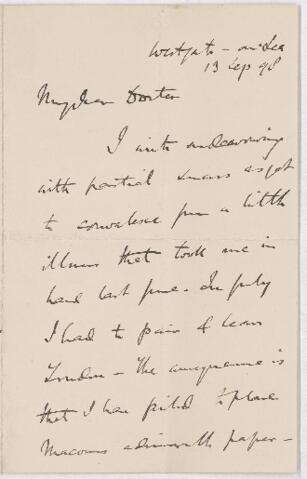 Westgate-on-Sea
13 Sep 98
My dear Doctor
I with endeavouring
with partial success as yet
to convalesce from a little
illness that took me in
hand last June. In July
I had to pair & leave
London – The consequence is
that I have failed to place
Macoun's admirable paper –